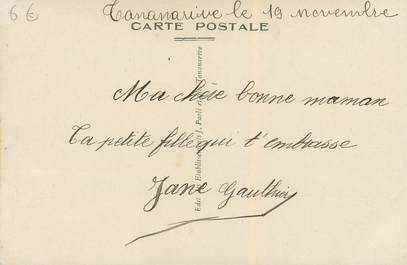 6€ Tananarive le 19 novembre
CARTE POSTALE
Ma chère bonne maman
Ta petite fille qui t'embrasse
Jane Gauthier
Edit. des Etablissements J. Paoli et Tananarive